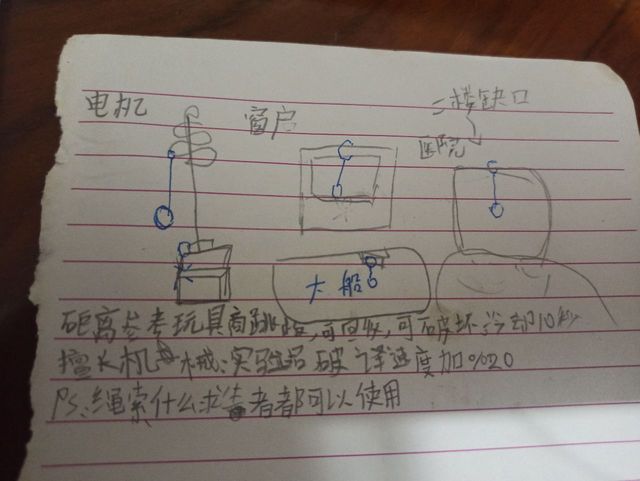 电机
窗户
二楼缺口
医院
大船
距离参考玩具商跳板,可回收,可破坏冷却10秒
擅长机械:实验品破译速度加%20
Ps:绳索什么求生者都可以使用